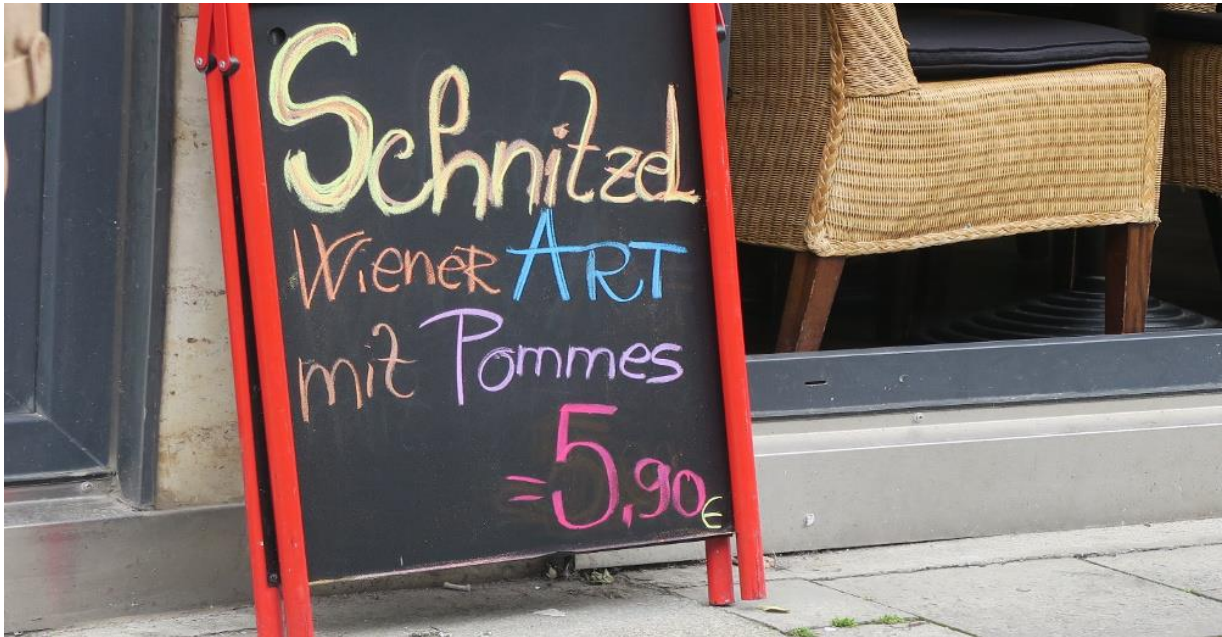 Schnitzel
Wiener ART
mit Pommes
=5,90€